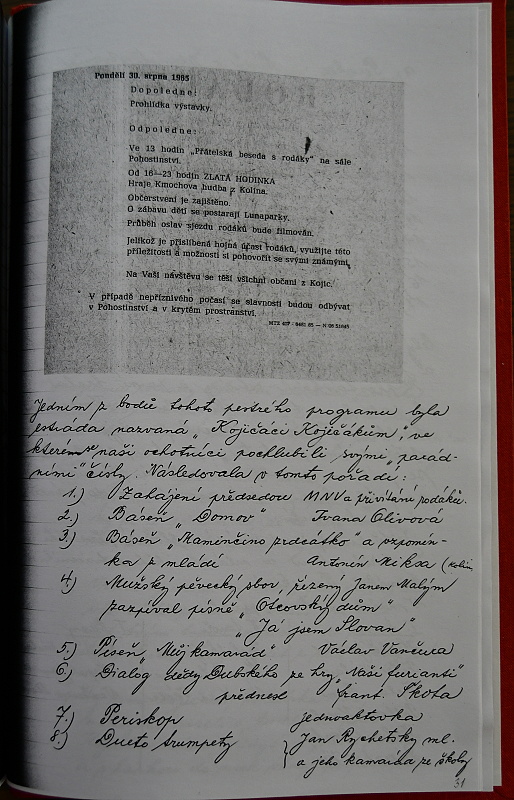 Pondělí 30. srpna 1985
Dopoledne:
Prohlídka výstavky.
Odpoledne:
Ve 13 hodin „Přátelská beseda s rodáky" na sále
Pohostinství.
Od 16—23 hodin ZLATÁ HODINKA
Hraje Kmochova hudba z Kolína.
Občerstvení je zajištěno.
O zábavu dětí se postarají Lunaparky.
Průběh oslav sjezdu rodáků bude filmován.
Jelikož je přislíbená hojná účast rodáků, využijte této
příležitosti a možnosti si pohovořit se svými známými.
Na Vaši návštěvu se těší všichni občani z Kojic.
V případě nepříznivého počasí se slavnosti budou odbývat
v Pohostinství a v krytém prostranství.
MTZ 407
Jedním z bodů tohoto pestrého programu byla
estráda nazvaná „Kojičáci Kojičákům", ve
kterém se naši ochotníci pochlubili svými „parád-
ními" čísly. Následovala v tomto pořadí:
1.) Zahájení předsedou MNV a přivítání rodáků.
2.) Báseň „Domov" Ivana Olivová
3.) Báseň „Maminčino srdéčko" a vzpomín-
ka z mládí Antonín Miksa (Kolín
4.) Mužský pěvecký sbor, řízený Janem Malým
zazpíval písně „Otcovský dům"
„Já jsem Slovan"
5.) Píseň „Můj kamarád" Václav Vančura
6.) Dialog dědy Dubského ze hry „Naši furianti"
přednesl frant. Škota
7.) Periskop jednoaktovka
8.) Dueto trumpety Jan Rychetský ml.
a jeho kamarád ze školy
31